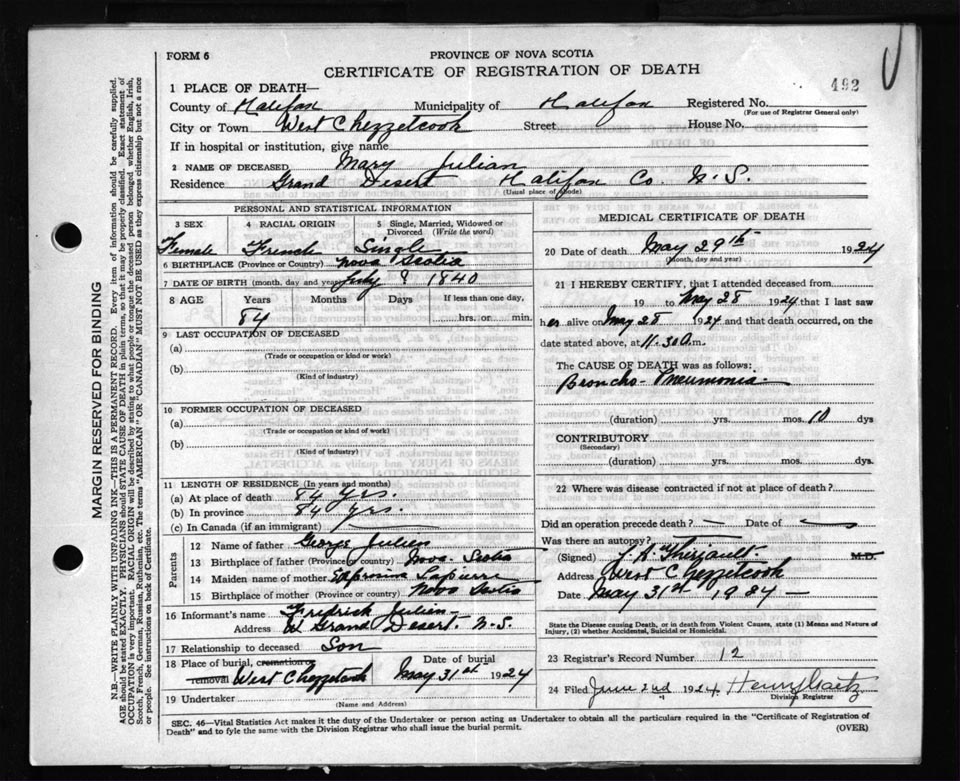 FORM 6
PROVINCE OF NOVA SCOTIA
CERTIFICATE OF REGISTRATION OF DEATH
492
1 PLACE OF DEATH—
County of Halifax Municipality of Halifax Registered No.
(For use of Registrar General only)
City or Town West Chezzetcook Street House No.
If in hospital or institution, give name
2 NAME OF DECEASED Mary Julian
Residence Grand Desert Halifax Co. N.S.
(Usual place of abode)
PERSONAL AND STATISTICAL INFORMATION
3 SEX 4 RACIAL ORIGIN 5 Single, Married, Widowed or Divorced (Write the word)
Female French Single
6 BIRTHPLACE (Province or Country) Nova Scotia
7 DATE OF BIRTH (month, day and year) July ? 1840
8 AGE Years Months Days If less than one day,
84 hrs. or min.
9 LAST OCCUPATION OF DECEASED
(a)
(Trade or occupation or kind of work)
(b)
(Kind of industry)
10 FORMER OCCUPATION OF DECEASED
(a)
(Trade or occupation or kind of work)
(b)
(Kind of industry)
11 LENGTH OF RESIDENCE (In years and months)
(a) At place of death 84 yrs.
(b) In province 84 yrs.
(c) In Canada (if an immigrant)
Parents
12 Name of father George Julien
13 Birthplace of father (Province or Country) Nova Scotia
14 Maiden name of mother Lapierre
15 Birthplace of mother (Province or country) Nova Scotia
16 Informant's name Fredrick Julien
Address W Grand Desert. N.S.
17 Relationship to deceased Son
18 Place of burial, cremation or removal West Chezzetcook Date of burial May 31st 1924
19 Undertaker
(Name and Address)
MEDICAL CERTIFICATE OF DEATH
20 Date of death May 29th 1924
(Month, day and year)
21 I HEREBY CERTIFY, that I attended deceased from
19 to May 28 1924 that I last saw
her alive on May 28 1924 and that death occurred, on the
date stated above, at 11.30 a.m.
The CAUSE OF DEATH was as follows:
Broncho-Pneumonia
(duration) yrs. mos. 10 dys
CONTRIBUTORY
(Secondary)
(duration) yrs. mos. dys.
22 Where was disease contracted if not at place of death?
Did an operation precede death? — Date of
Was there an autopsy?
(Signed) J. A. Theriault M.D.
Address West Chezzetcook
Date May 31st 1924
State the Disease causing Death, or in death from Violent Causes, state (1) Means and Nature of
Injury, (2) whether Accidental, Suicidal or Homicidal.
23 Registrar's Record Number 12
24 Filed June 2nd 1924 Henry
Division Registrar
SEC. 46—Vital Statistics Act makes it the duty of the Undertaker or person acting as Undertaker to obtain all the particulars required in the "Certificate of Registration of
Death" and to fyle the same with the Division Registrar who shall issue the burial permit.
(OVER)
MARGIN RESERVED FOR BINDING
N.B.—WRITE PLAINLY WITH UNFADING INK—THIS IS A PERMANENT RECORD. Every item of information should be carefully supplied.
AGE should be stated EXACTLY. PHYSICIANS should STATE CAUSE OF DEATH in plain terms, so that it may be properly classified. Exact statement of
OCCUPATION is very important. RACIAL ORIGIN will be described by stating to what people or tongue the deceased person belonged whether English, Irish,
Scotch, French, German, Russian, Ruthenian, etc. The terms "AMERICAN" OR "CANADIAN" MUST NOT BE USED as they express citizenship but not a race
or people. See instructions on back of Certificate.